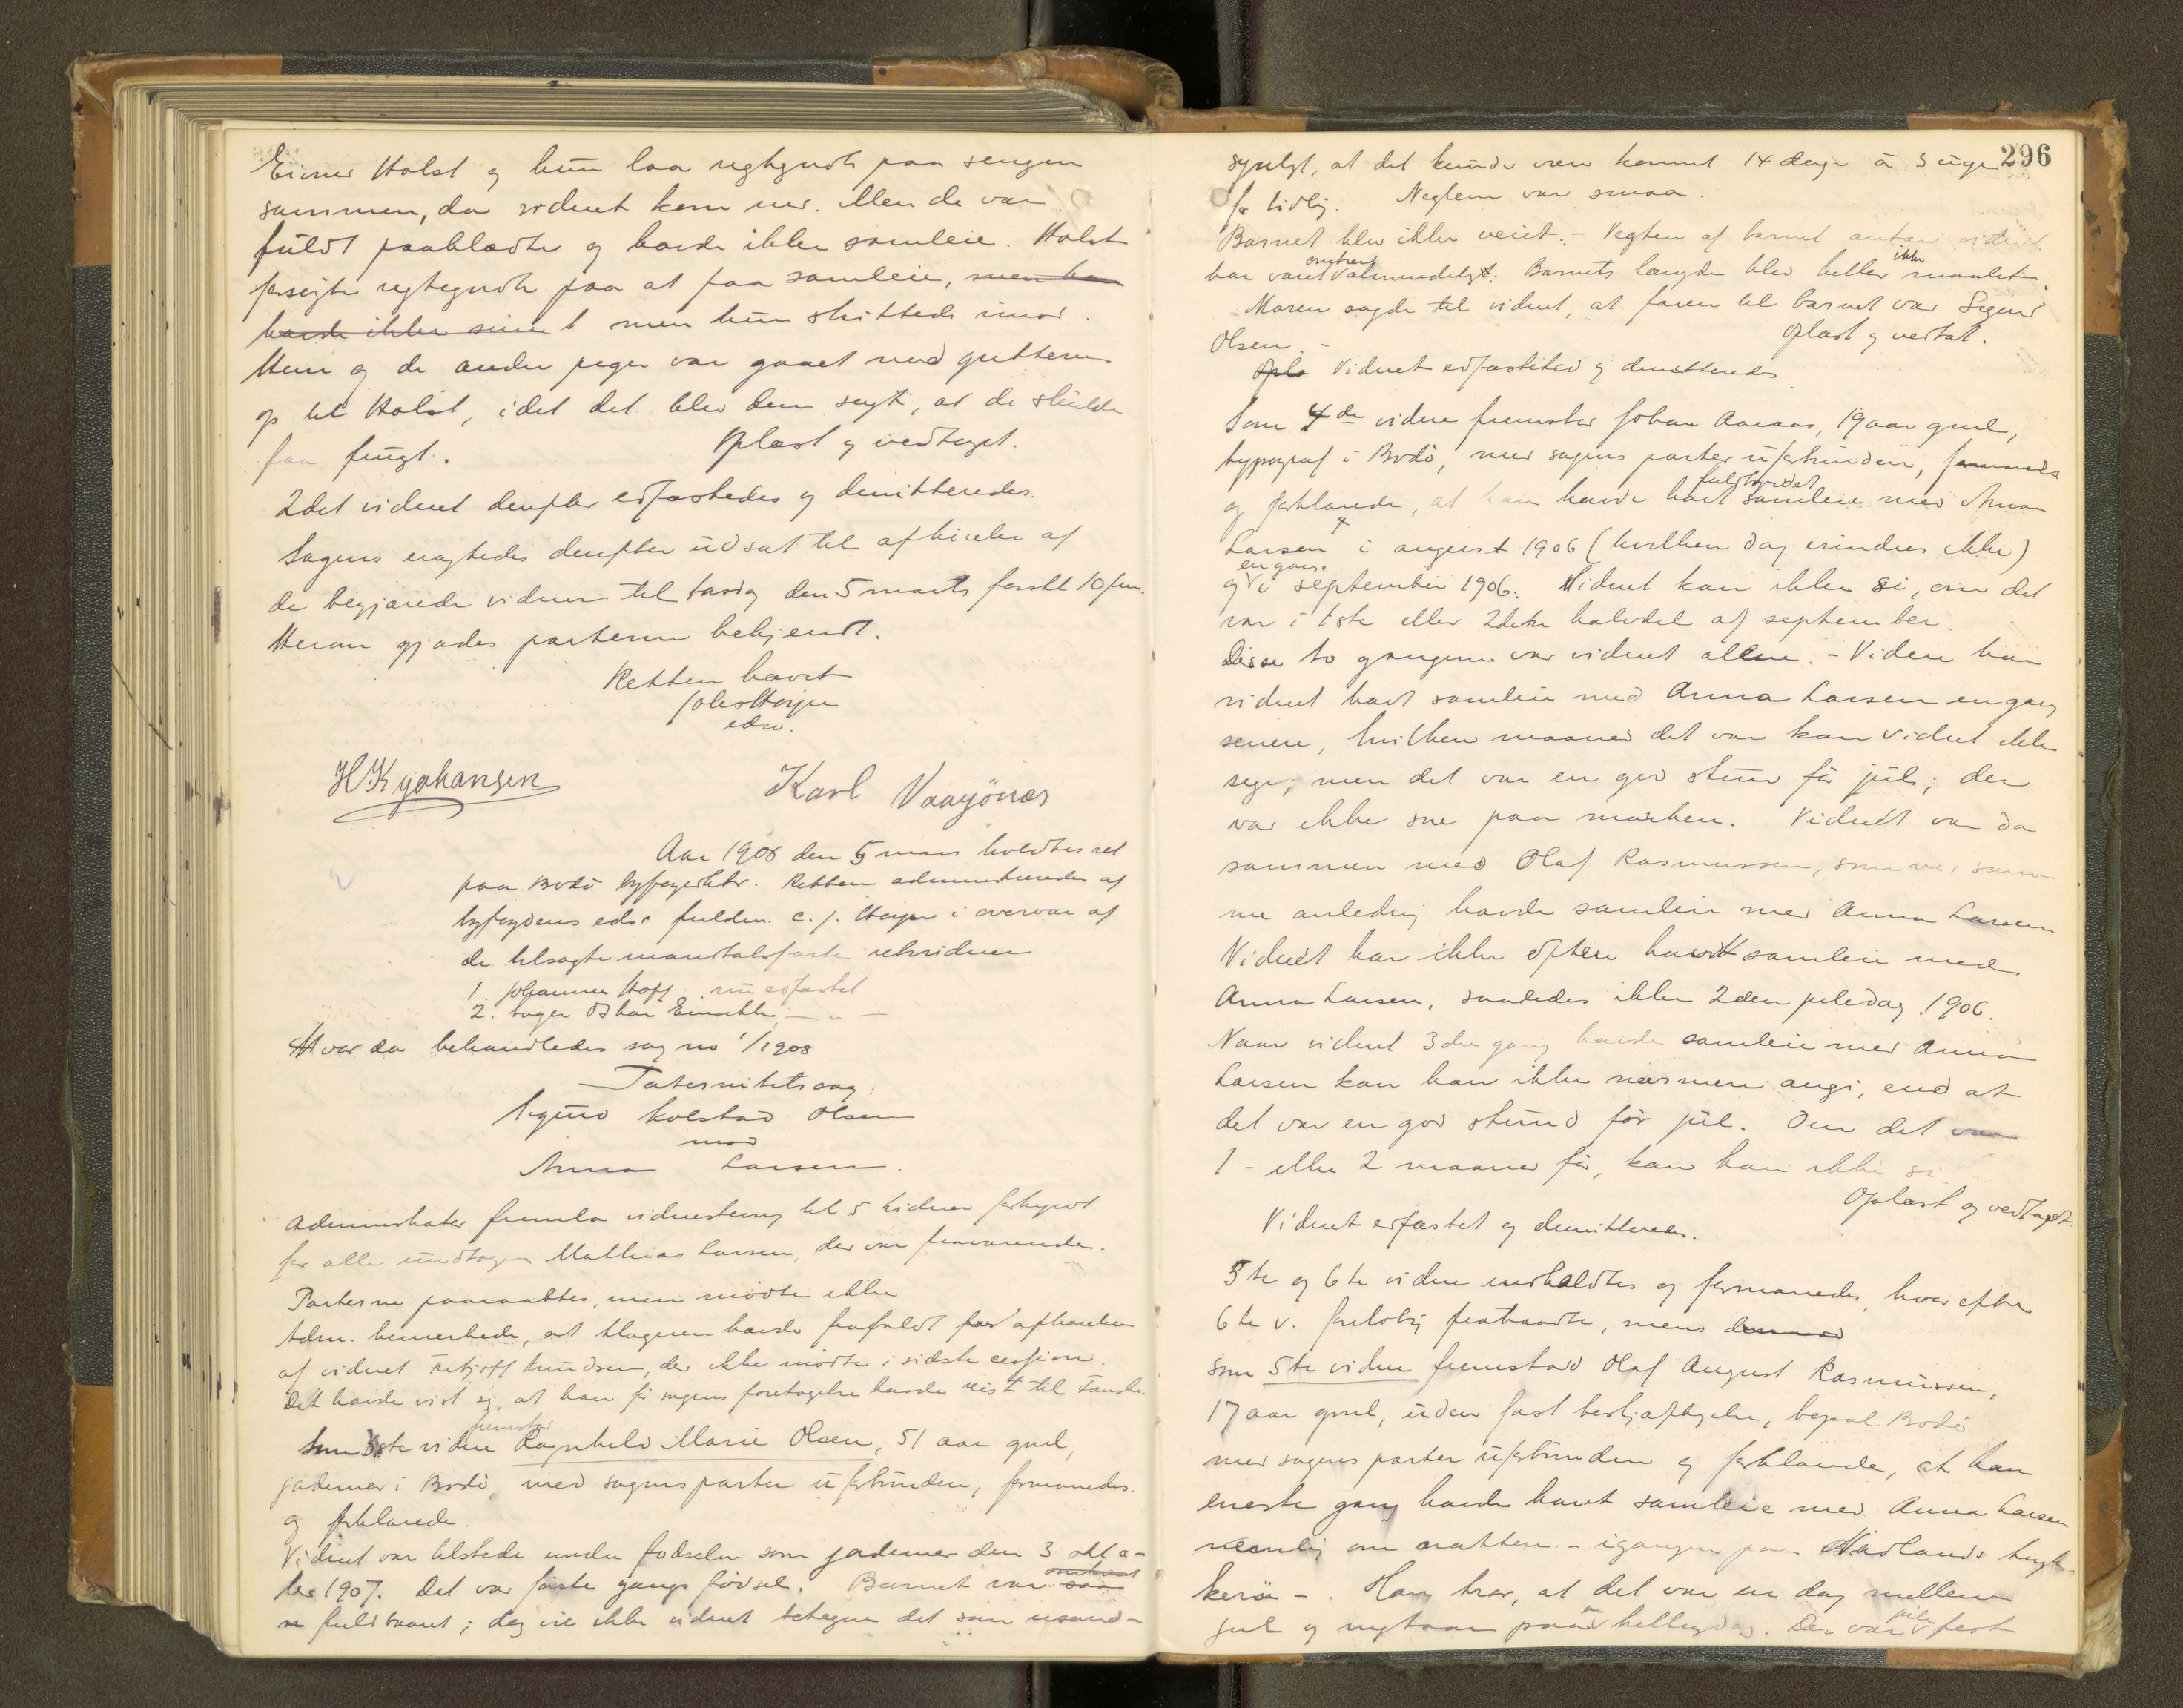 Einar Holst og hun laa ugtgnoli paa sengen
sammen, da vidnet kom ner. Men de var
fuldt paaklædte og havde ikke samleie. Holst
forsøgte paa at faa samleie, men han
havde ikke men hun skittede imod.
Hun og de andre piger var gaaet med gutterne
op til Holst, idet det blev dem sagt, at de skulde
faa frugt. Oplæst og vedtaget.
2det vidnet derefter edfæstedes og demitteredes.
Sagens eragtedes derefter udsat til afhørelse af
de begjærede vidner til tirsdag den 5 marts førstk 10 fm.
Herom gjordes parterne bekjendt.
Retten hævet
edsv.
H K Johansen Karl Vaagönæs
Aar 1908 den 5 mars holdtes ret
paa Bodö byfogedktr. Retten administreredes af
byfogdens eds. fuldm. C. J. i overvær af
de tilsagte mandtalsførte retsvidner
1. Johannes Hoff nu edfæstet
2. Oskar — „ —
Hvor da behandledes sag no 1/1908
Paternitetssag:
Sigurd Kolstad Olsen
mod
Anna Larsen.
Administrator fremla vidnestevning til 5 vidner forkyndt
for alle undtagen Mathias Larsen, der var fraværende.
Parterne paaraabtes, men mødte ikke
Adm. bemerkede, at klageren havde frafaldt afhørelsen
af vidnet Fritjoff Knudsen, der ikke mødte i sidste session.
Det havde vist sig, at han før sagens foretagelse havde reist til
fremstod
Som 3die vidne Ragnhild Marie Olsen, 51 aar gml,
jordemor i Bodö, med sagens parter uforbunden, formanedes
og forklarede
Vidnet var tilstede under fødselen som jordemor den 3 okto-
ber 1907. Det var første gangs fødsel. Barnet var omtrent saa
n fuldbaaret; dog vil ikke vidnet betegne det som usand-
296
synligt, at det kunde være kommet 14 dage à 3 uger
for tidlig. Neglene var smaa.
Barnet blev ikke veiet. – Vegten af barnet antar vidnet
har været omtrent almindeligt. Barnets længde blev heller ikke maalet.
Moren sagde til vidnet, at faren til barnet var Sigurd
Olsen. – Oplæst og vedtat.
Oplæ Vidnet edfæstited og demitteredes
Som 4de vidne fremstod Johan Aaraas, 19 aar gml,
typograf i Bodö, med sagens parter uforbunden, formanedes
og forklarede, at han havde havt fuldbyrdet samleie med Anna
Larsen i august 1906 (hvilken dag erindres ikke)
og en gang i september 1906. Vidnet kan ikke si, om det
var i 1ste eller 2den halvdel af september.
Disse to gangene var vidnet alene. – Videre har
vidnet havt samleie med Anna Larsen en gang
senere, hvilken maaned det var kan vidnet ikke
sige, men det var en god stund før jul; der
var ikke sne paa marken. Vidnet var da
sammen med Olaf Rasmussen, som ved sam
me anledning havde samleie med Anna Larsen
Vidnet har ikke oftere havt samleie med
Anna Larsen, saaledes ikke 2den juledag 1906.
Naar vidnet 3die gang havde samleie med Anna
Larsen kan han ikke nærmere angi, end at
det var en god stund før jul. Om det var
1 – eller 2 maaneder før, kan han ikke si.
Oplæst og vedtaget
Vidnet edfæstet og demitteredes.
5te og 6te vidne indkaldtes og formanedes, hvorefter
6te v. foreløbig fratraadte, mens dermed
som 5te vidne fremstod Olaf August Rasmussen,
17 aar gml, uden fast beskjæftigelse, bopæl Bodö
med sagens parter uforbunden og forklarede, at han
eneste gang havde havt samleie med Anna Larsen
nemlig om natten – i gangen paa Hadlands
– . Han tror, at det var en dag mellem
jul og nytaar paa en helligdag. Der var jule fest